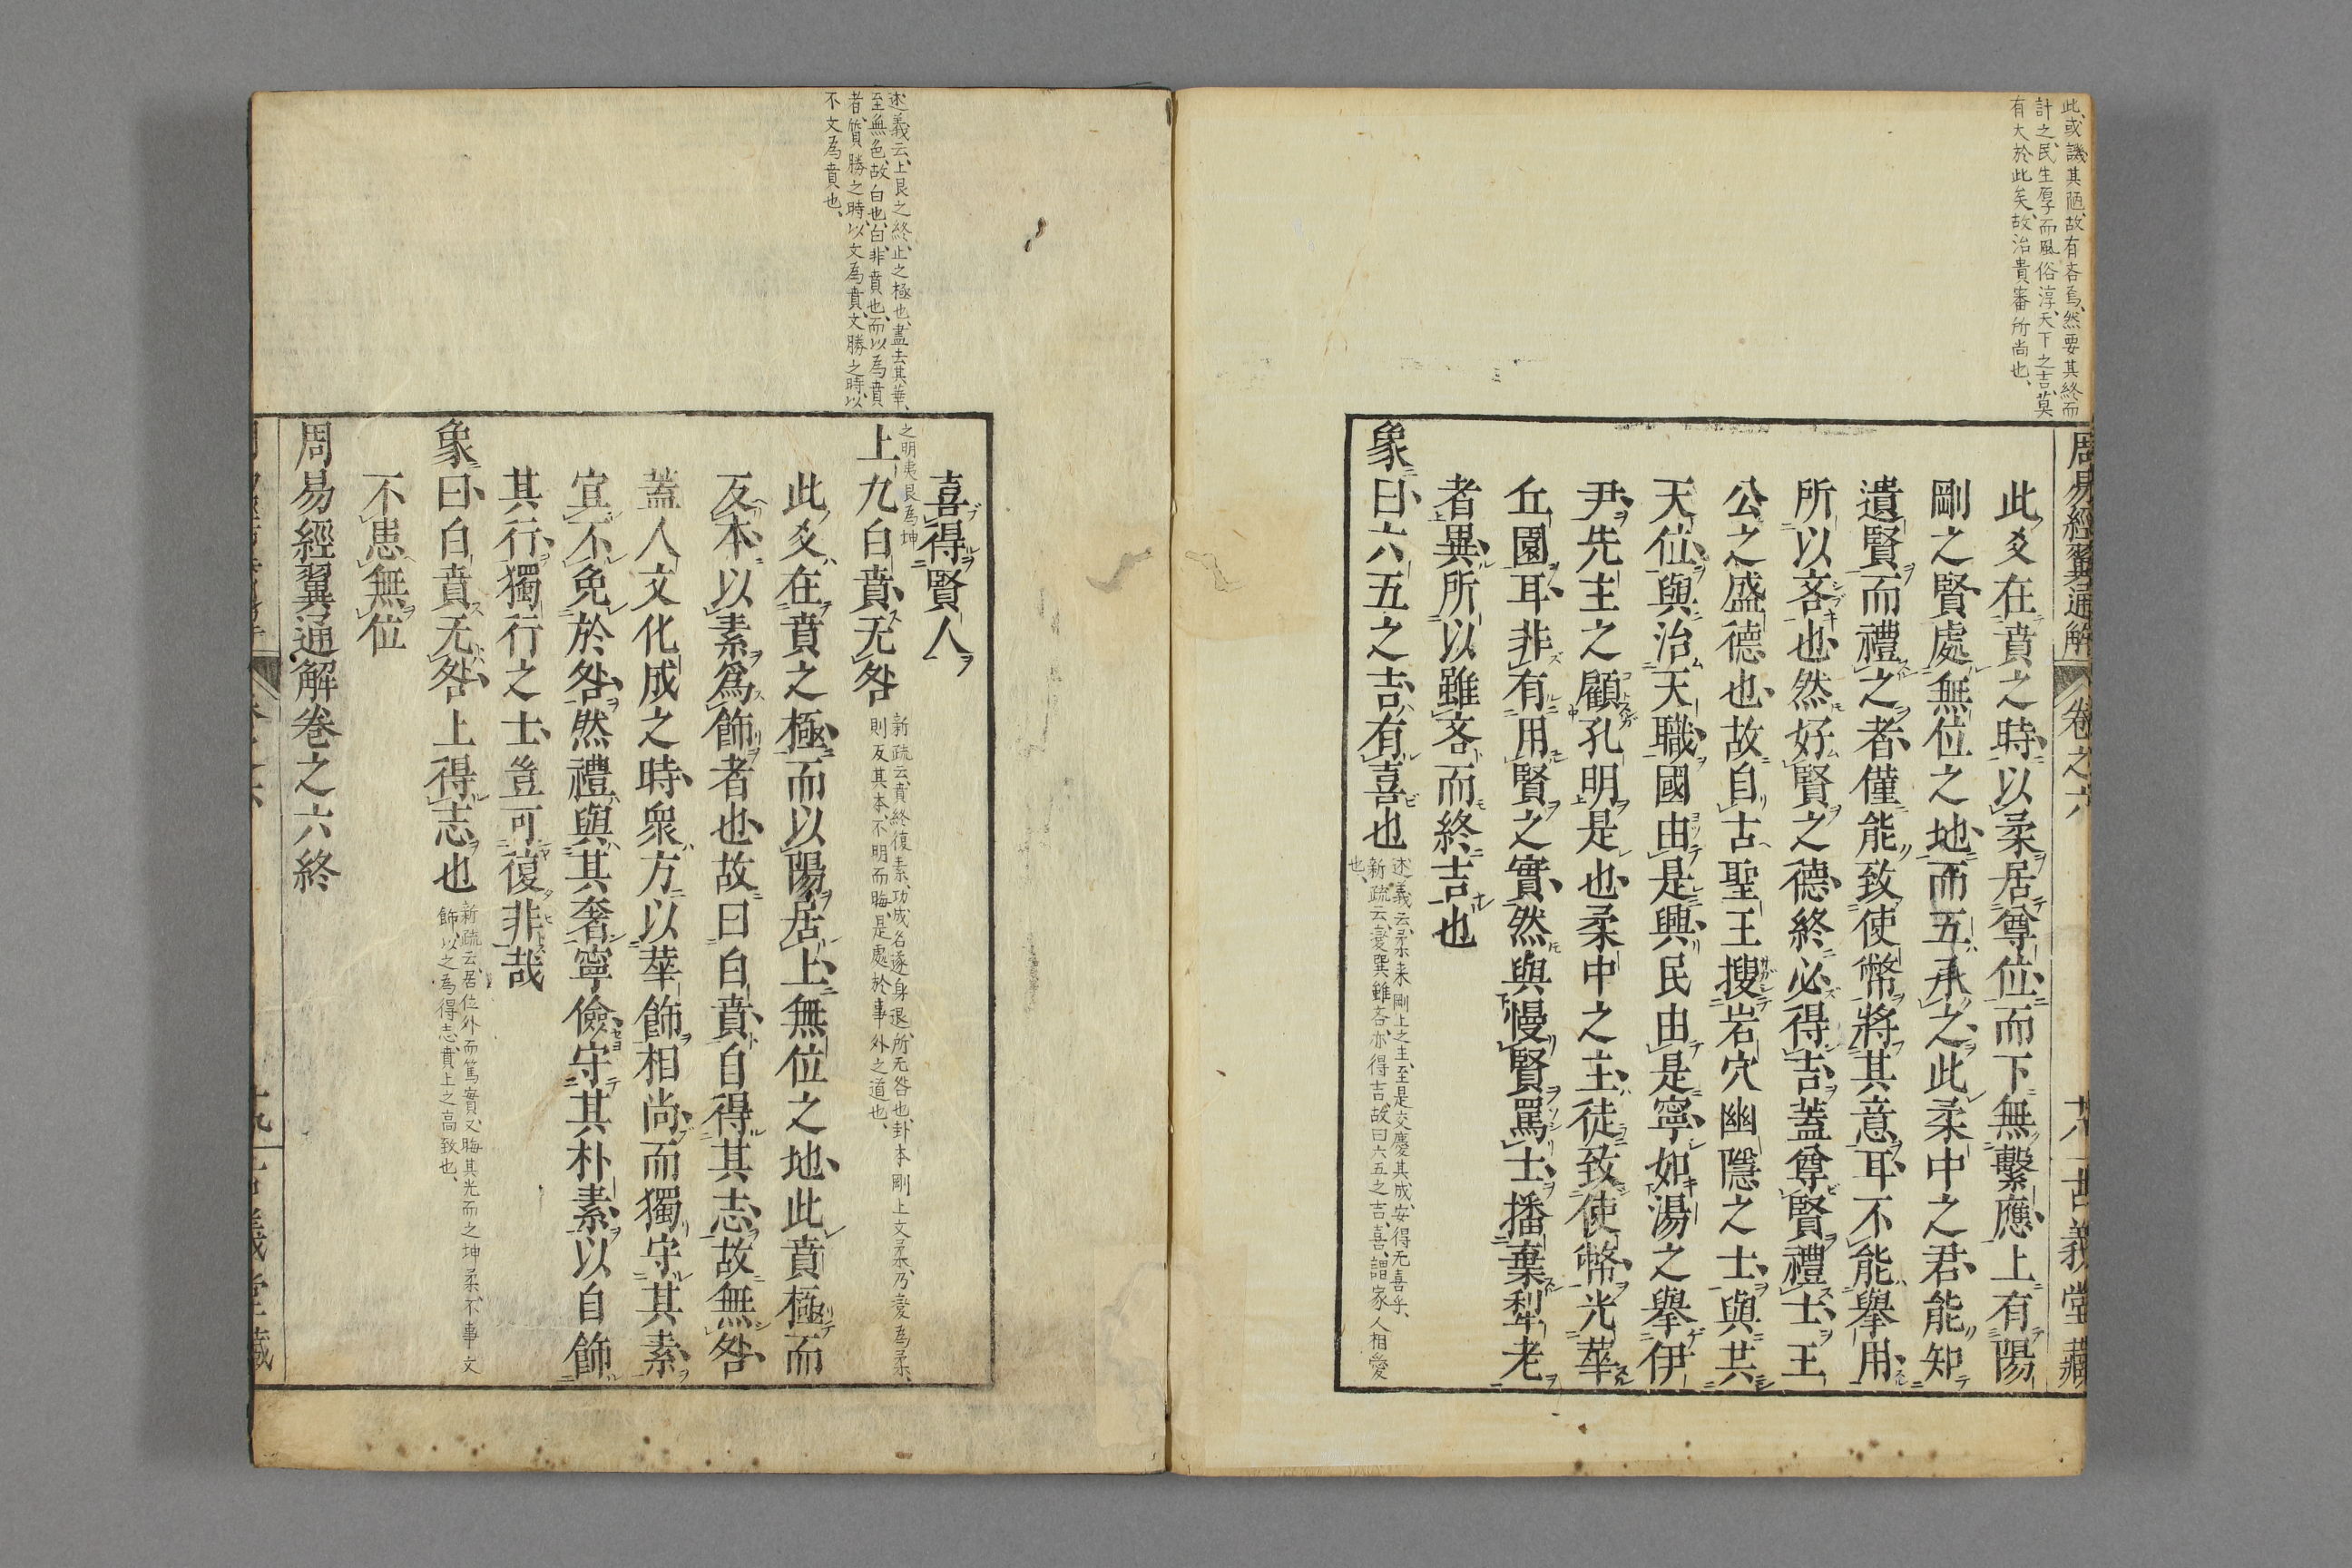 此或譏其陋故有吝焉然要其終而
計之民生厚而風俗淳天下之吉莫
有大於此矣故治貴審所尚也
周易經翼通解
卷之六
古義堂藏
此爻在賁之時以柔居尊位而下無繫應上有陽
剛之賢處無位之地而五承之此柔中之君能知
遺賢而禮之者僅能致使幣將其意耳不能舉用
所以吝也然好賢之德終必得吉蓋尊賢禮士王
公之盛德也故自古聖王搜岩穴幽隱之士與共
天位與治天職國由是興民由是寧如湯之舉伊
尹先主之顧孔明是也柔中之主徒致使幣光華
丘園耳非有用賢之實然與慢賢罵士播棄犁老
者異所以雖吝而終吉也
象曰六五之吉有喜也
述義云柔來剛上之主至是交慶其成安得无喜乎
新疏云變巽雖吝亦得吉故曰六五之吉喜謂家人相愛
也
述義云上艮之終止之極也盡去其華
至無色故白也白非賁也而以為賁
者質勝之時以文為賁文勝之時以
不文為賁也
喜得賢人
之明夷艮為坤
上九白賁无咎
新疏云賁終復素功成名遂身退所无咎也卦本剛上文柔乃變為柔
則反其本不明而晦是處於事外之道也
此爻在賁之極而以陽居上無位之地此賁極而
反本以素爲飾者也故曰白賁自得其志故無咎
蓋人文化成之時衆方以華飾相尚而獨守其素
宜不免於咎然禮與其奢寧儉守其朴素以自飾
其行獨行之士豈可復非哉
象曰白賁无咎上得志也
新疏云居位外而篤實又晦其光而之坤柔不事文
飾以之為得志賁上之高致也
不患無位
周易經翼通解卷之六終